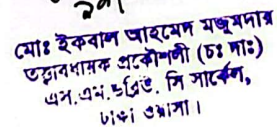 মোঃ ইকবাল আহমেদ মজুমদার
তত্ত্বাবধায়ক প্রকৌশলী (চঃ দাঃ)
এস.এম. সি সার্কেল,
ঢাকা ওয়াসা।